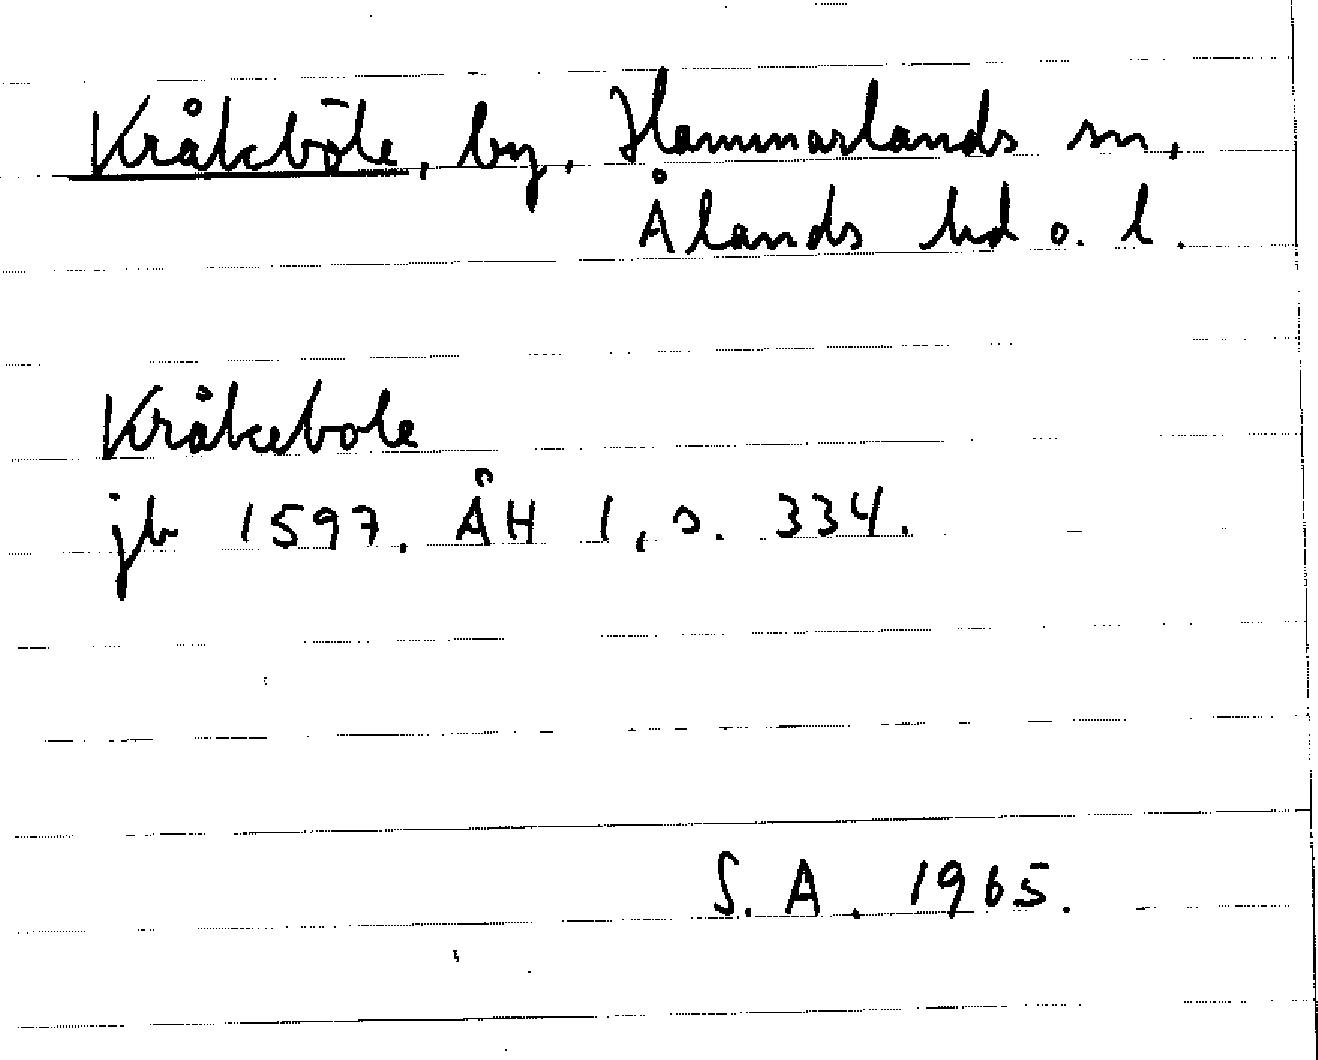 Kråkböle, by, Hammarlands sn,
Ålands hd o. l.
Kråkebole
jb 1597. ÅH 1, s. 334.
S. A. 1965.